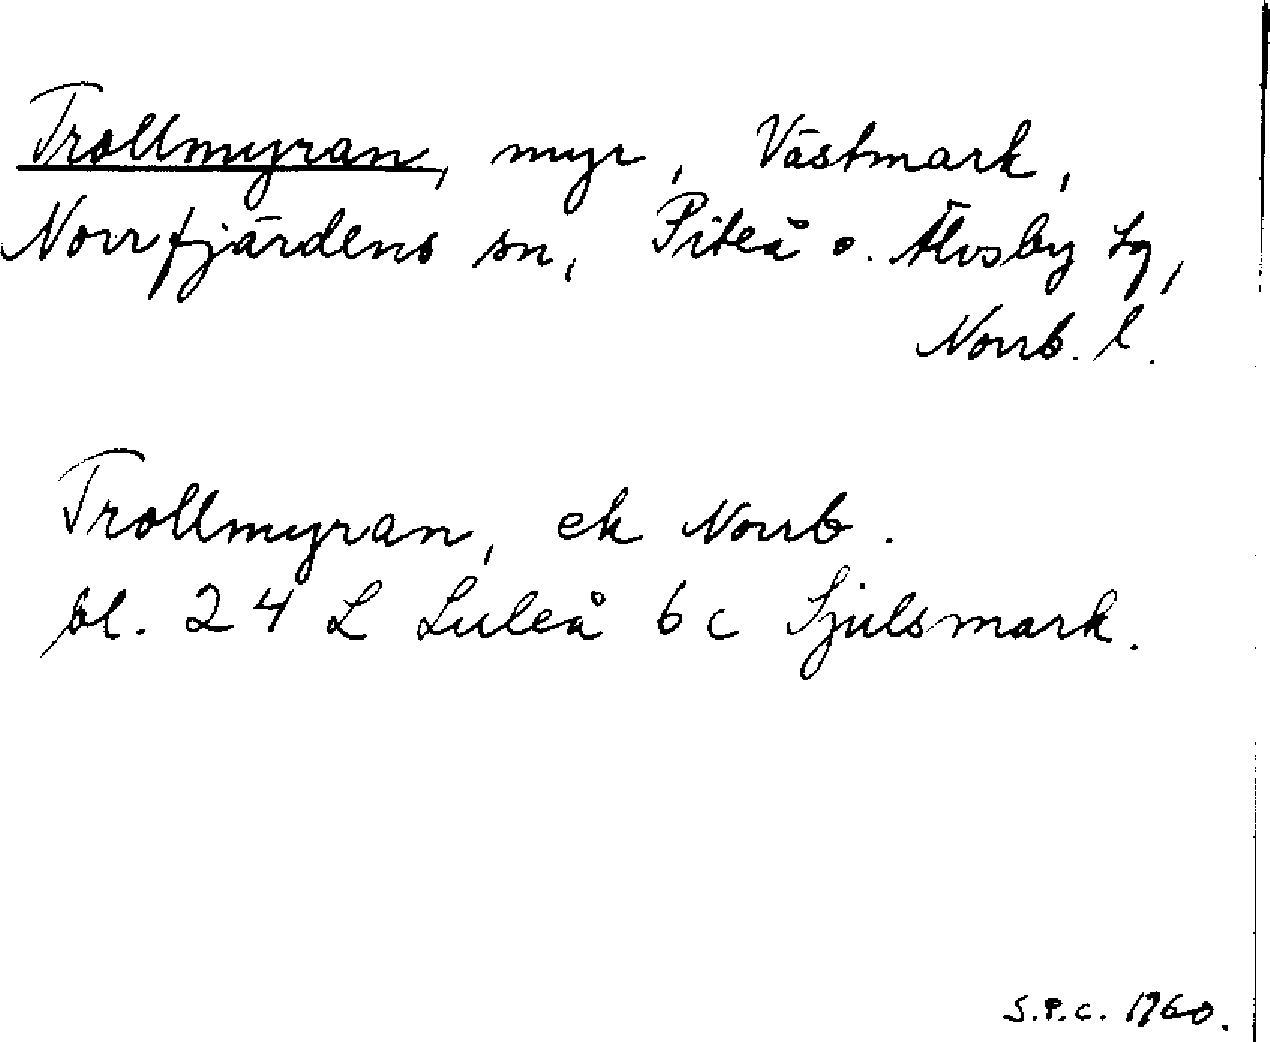 Trollmyran, myr, Västmark,
Norrfjärdens sn, Piteå o. Älvsby tg,
Norrb. l.
Trollmyran, ek Norrb.
bl. 24 L Luleå 6c Sjulsmark.
S.P.C. 1960.